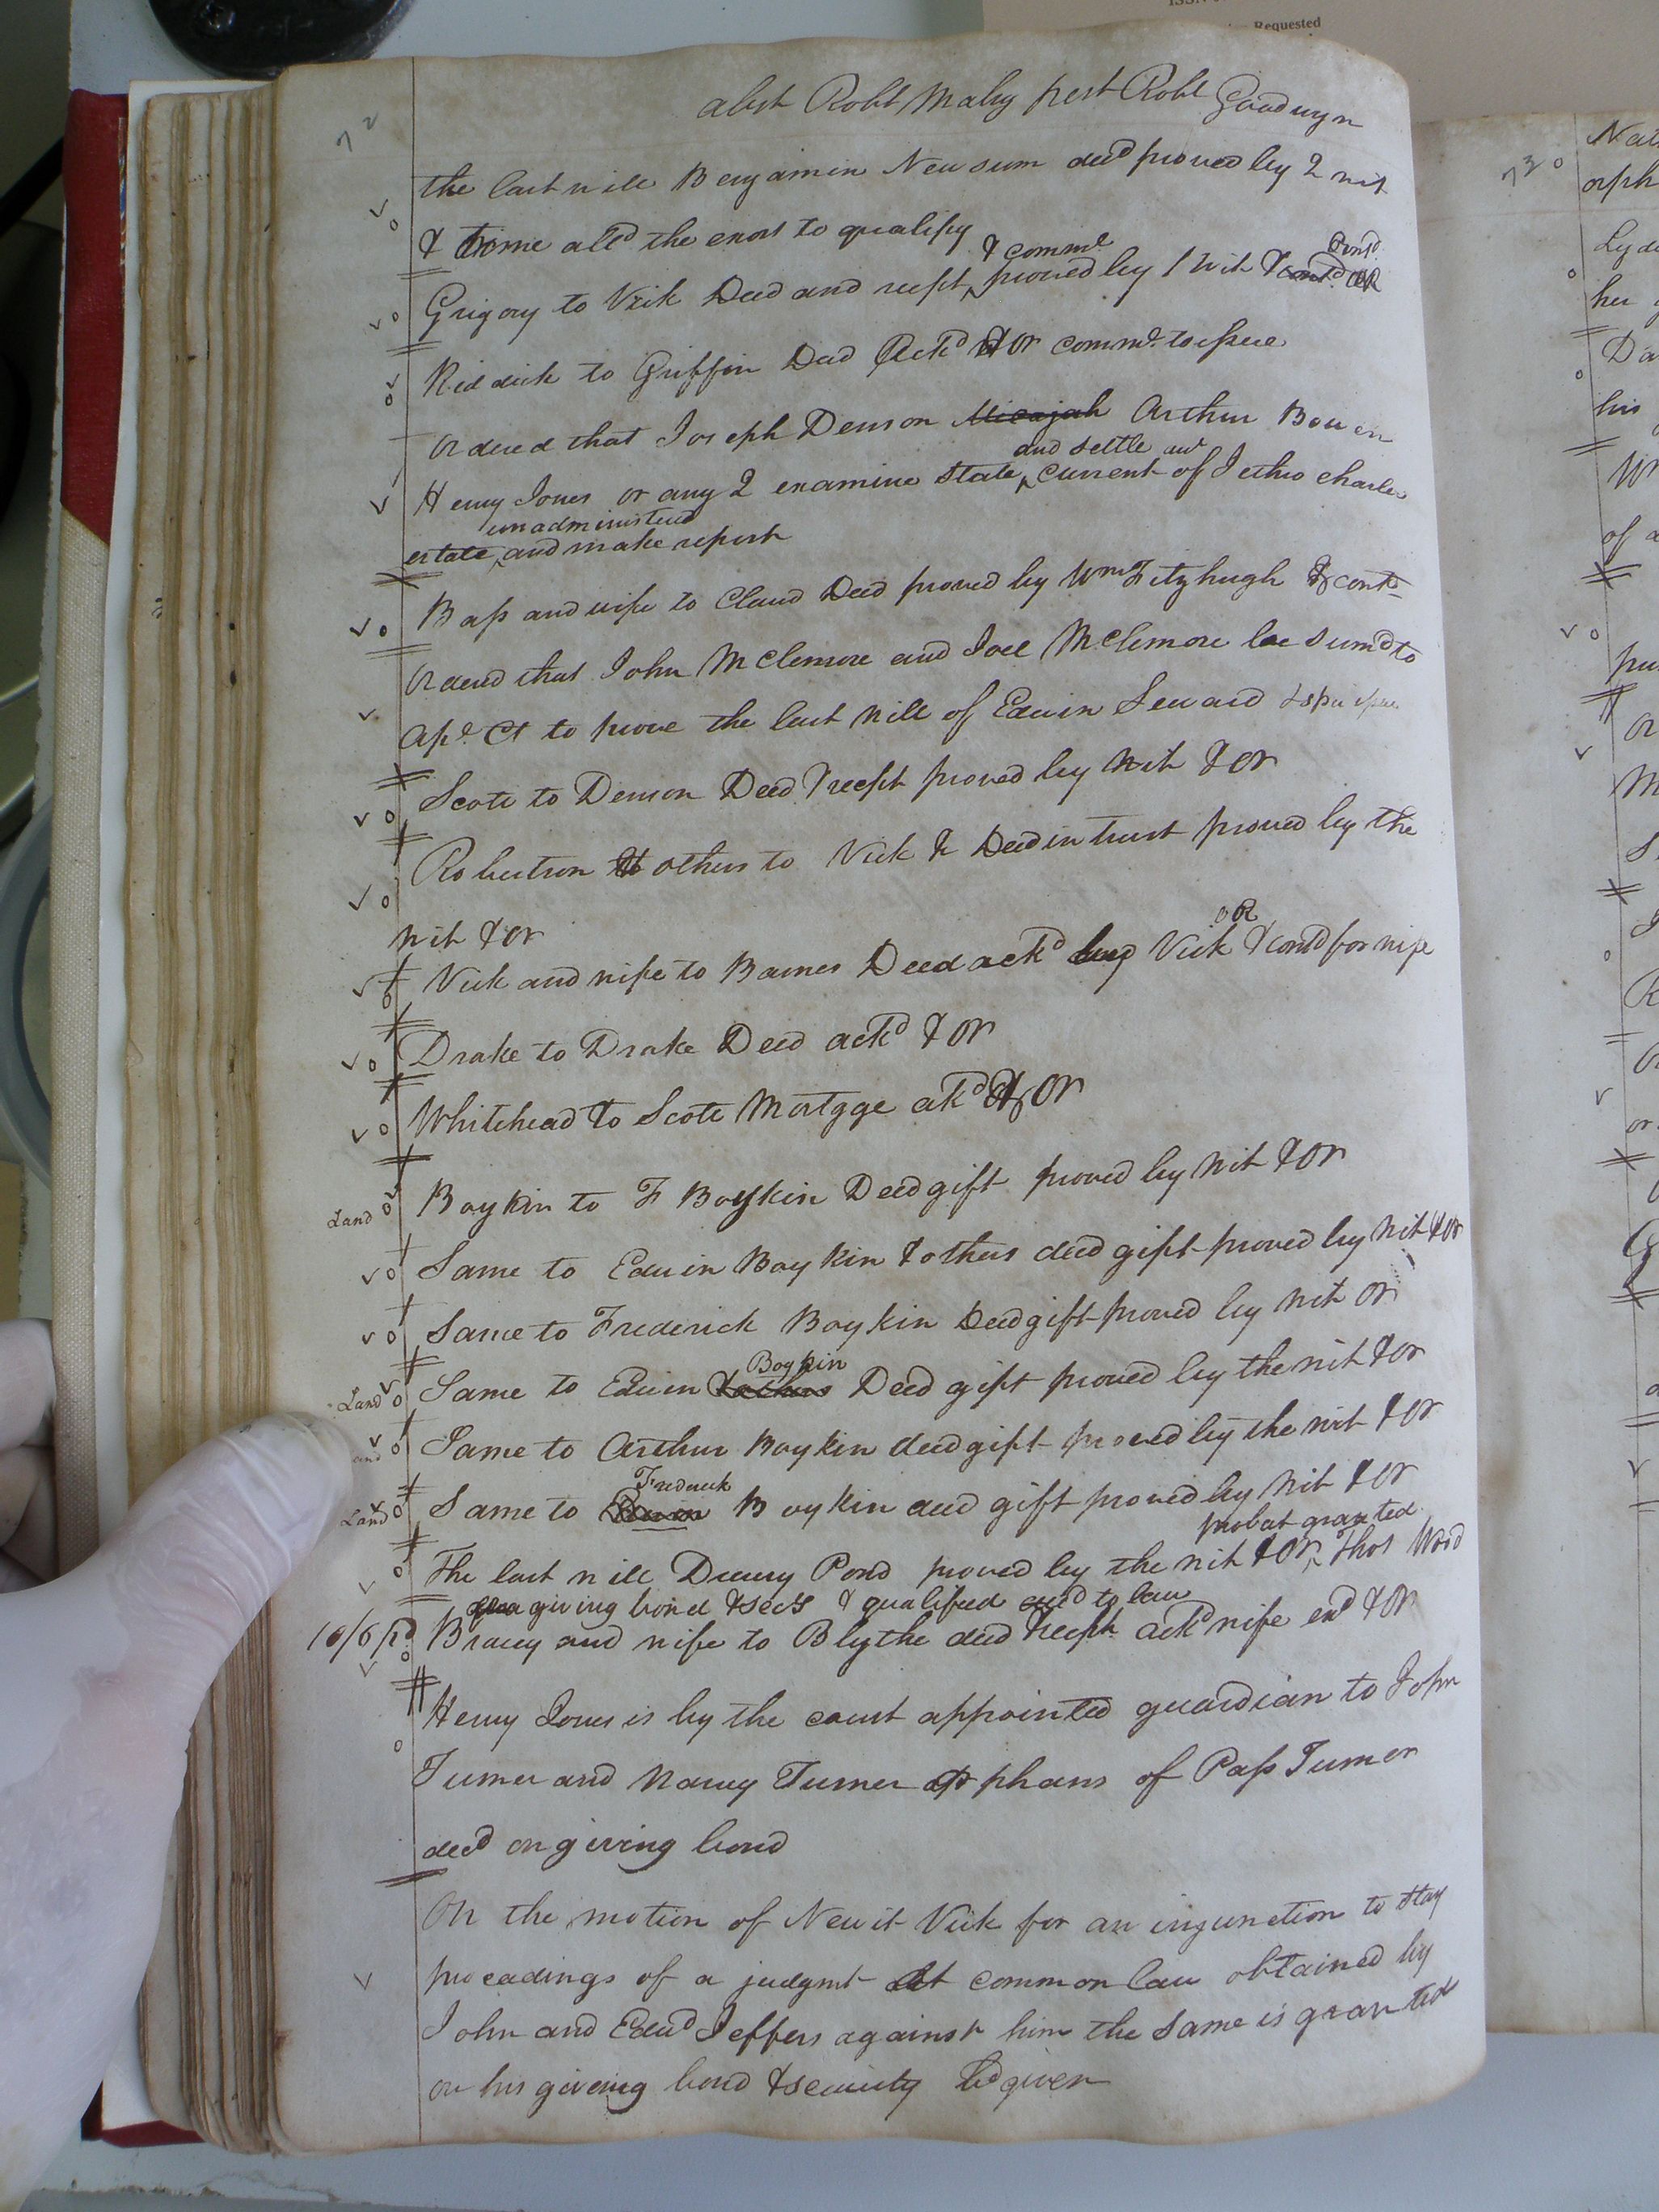 Requested
72
abst Robt Maby prest Robt Goodwyn
the last will Benjamin Newsum decd proved by 2 wit
& time alld the exors to qualify
& commn
Contd
Grigory to Vick Deed and recpt proved by 1 wit & contd OR
Riddick to Griffin Deed Ackd & OR commn to issue
Ordered that Joseph Denson Micajah Arthur Bowen
and settle
Henry Jones or any 2 examine state current of Jethro Charles
unadministered
estate and make report
Bass and wife to Claud Deed proved by Wm Fitzhugh & contd
Ordered that John McClemore and Joel McClemore be sumd to
apr Ct to prove the last will of Edwin Seward
Scott to Denson Deed & recpt proved by wit & OR
Robertson & others to Vick & Deed in trust proved by the
wit & OR
OR
Vick and wife to Barnes Deed ackd by Vick & contd for wife
Drake to Drake Deed ackd & OR
Whitehead to Scott Mortgge akd & OR
Land Boykin to F Boykin Deed gift proved by wit & OR
Same to Edwin Boykin & others deed gift proved by wit & OR
Same to Frederick Boykin Deed gift proved by wit OR
Boykin
Land Same to Edwin & others Deed gift proved by the wit & OR
and Same to Arthur Boykin deed gift proved by the wit & OR
Frederick
Land Same to Edwin Boykin deed gift proved by wit & OR
probat granted
The last will Drewry Pond proved by the wit & OR, Thos Ward
giving bond & secy & qualified accd to law
10/6 pd Bracey and wife to Blythe deed & recpt ackd wife exd & OR
Henry Jones is by the court appointed guardian to John
Turner and Nancy Turner orphans of Pass Turner
decd on giving bond
On the motion of Newit Vick for an injunction to stay
proceadings of a judgmt at common law obtained by
John and Edwd Jeffers against him the same is granted
on his giveing bond & security bd given
73